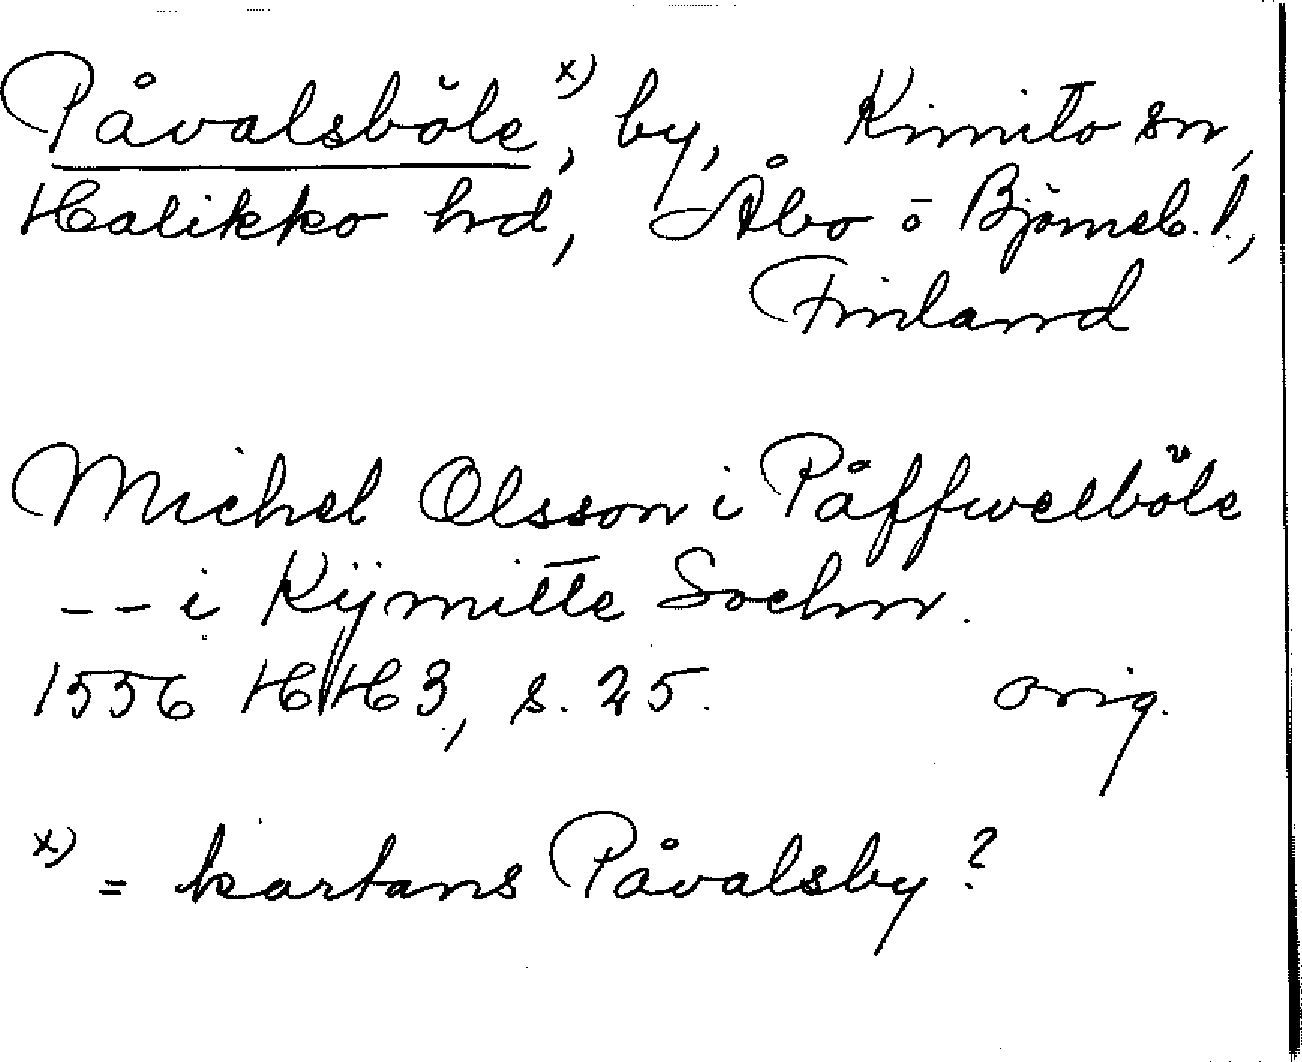 Påvalsböle x), by, Kimito sn,
Halikko hd, Åbo o Björneb. l.,
Finland
Michel Olsson i Påffwelböle
-- i Kijmitte Sochn.
1556 HH3, s. 25. orig.
x) = kartans Påvalsby?